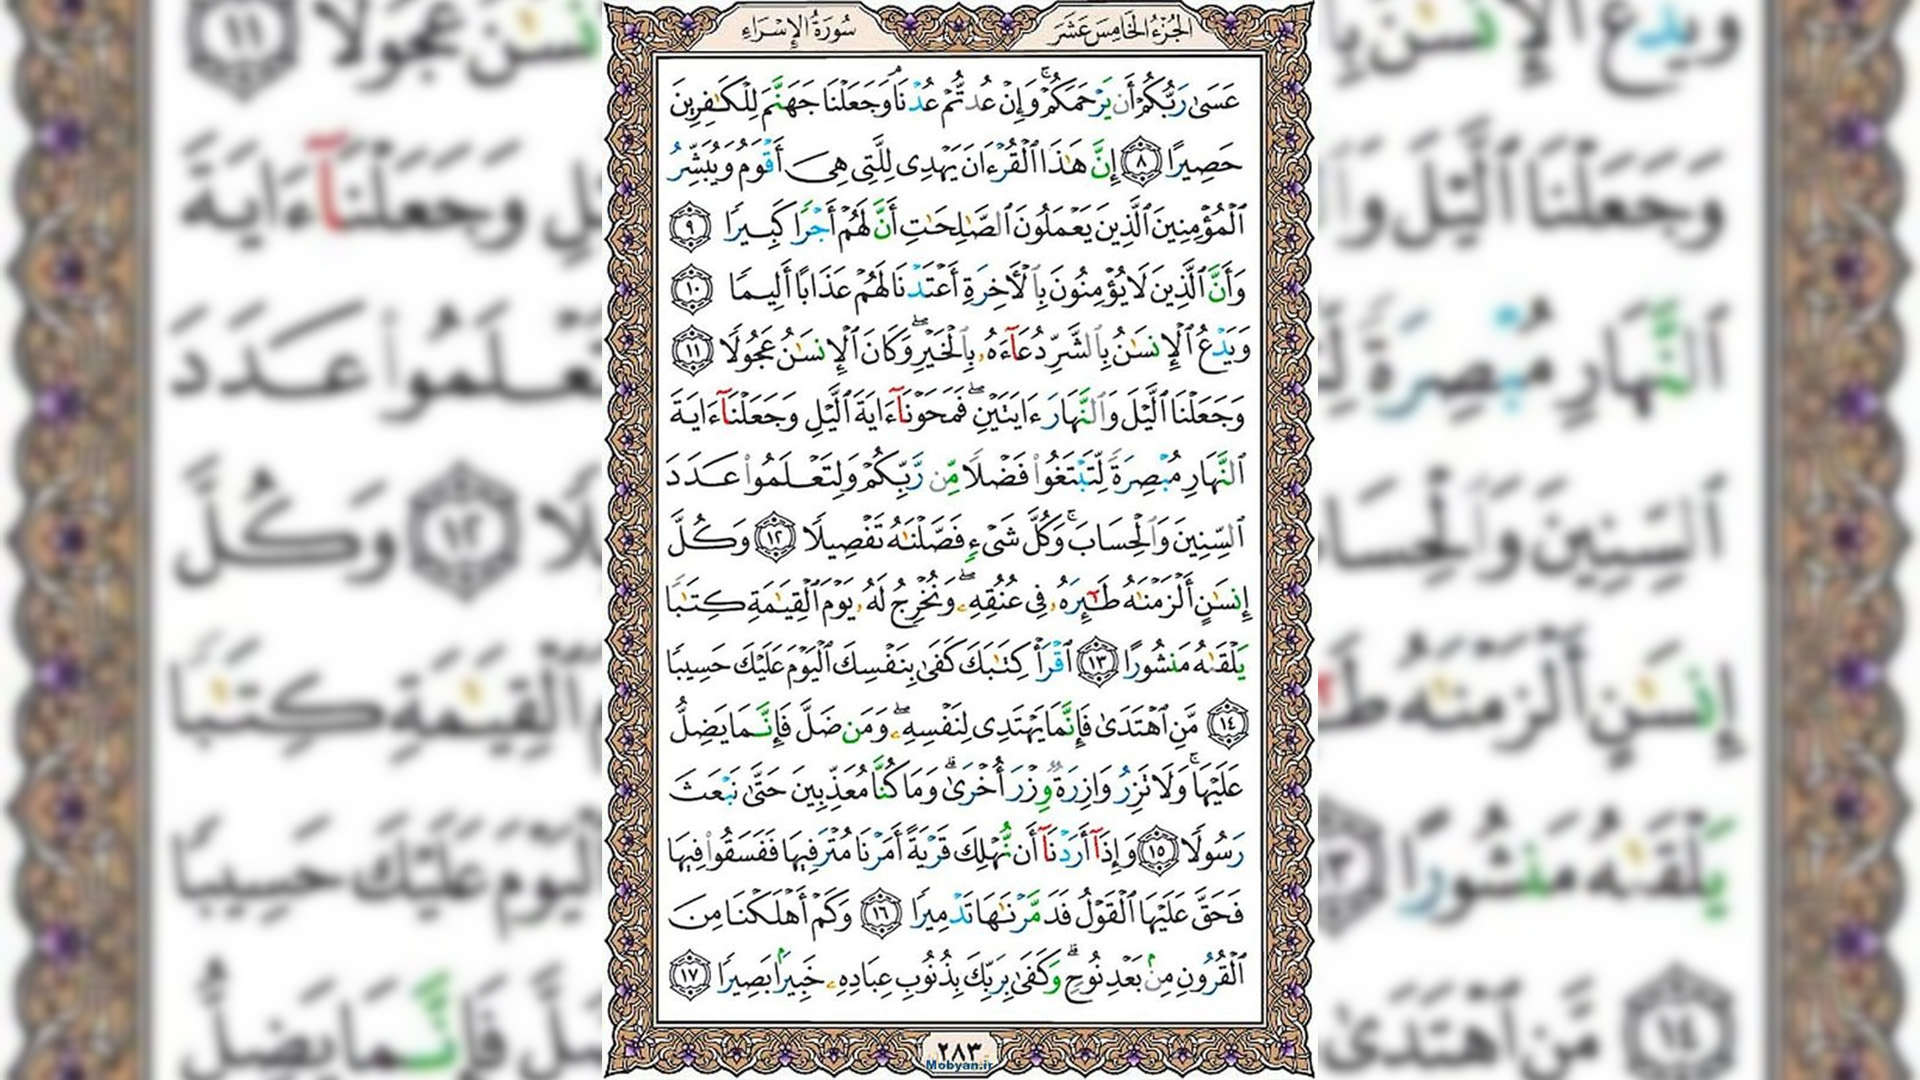 الجُزْءُ الخَامِسَ عَشَرَ
سُورَةُ الإِسْرَاءِ
عَسَىٰ رَبُّكُمْ أَن يَرْحَمَكُمْ ۚ وَإِنْ عُدتُّمْ عُدْنَا ۘ وَجَعَلْنَا جَهَنَّمَ لِلْكَـٰفِرِينَ
حَصِيرًا ٨ إِنَّ هَـٰذَا ٱلْقُرْءَانَ يَهْدِى لِلَّتِى هِىَ أَقْوَمُ وَيُبَشِّرُ
ٱلْمُؤْمِنِينَ ٱلَّذِينَ يَعْمَلُونَ ٱلصَّـٰلِحَـٰتِ أَنَّ لَهُمْ أَجْرًا كَبِيرًا ٩
وَأَنَّ ٱلَّذِينَ لَا يُؤْمِنُونَ بِٱلْأَخِرَةِ أَعْتَدْنَا لَهُمْ عَذَابًا أَلِيمًا ١٠
وَيَدْعُ ٱلْإِنسَـٰنُ بِٱلشَّرِّ دُعَآءَهُۥ بِٱلْخَيْرِ ۖ وَكَانَ ٱلْإِنسَـٰنُ عَجُولًا ١١
وَجَعَلْنَا ٱلَّيْلَ وَٱلنَّهَارَ ءَايَتَيْنِ ۖ فَمَحَوْنَآ ءَايَةَ ٱلَّيْلِ وَجَعَلْنَآ ءَايَةَ
ٱلنَّهَارِ مُبْصِرَةً لِّتَبْتَغُوا۟ فَضْلًا مِّن رَّبِّكُمْ وَلِتَعْلَمُوا۟ عَدَدَ
ٱلسِّنِينَ وَٱلْحِسَابَ ۚ وَكُلَّ شَىْءٍ فَصَّلْنَـٰهُ تَفْصِيلًا ١٢ وَكُلَّ
إِنسَـٰنٍ أَلْزَمْنَـٰهُ طَـٰٓئِرَهُۥ فِى عُنُقِهِۦ ۖ وَنُخْرِجُ لَهُۥ يَوْمَ ٱلْقِيَـٰمَةِ كِتَـٰبًا
يَلْقَىٰهُ مَنشُورًا ١٣ ٱقْرَأْ كِتَـٰبَكَ كَفَىٰ بِنَفْسِكَ ٱلْيَوْمَ عَلَيْكَ حَسِيبًا
١٤ مَّنِ ٱهْتَدَىٰ فَإِنَّمَا يَهْتَدِى لِنَفْسِهِۦ ۖ وَمَن ضَلَّ فَإِنَّمَا يَضِلُّ
عَلَيْهَا ۚ وَلَا تَزِرُ وَازِرَةٌ وِزْرَ أُخْرَىٰ ۗ وَمَا كُنَّا مُعَذِّبِينَ حَتَّىٰ نَبْعَثَ
رَسُولًا ١٥ وَإِذَآ أَرَدْنَآ أَن نُّهْلِكَ قَرْيَةً أَمَرْنَا مُتْرَفِيهَا فَفَسَقُوا۟ فِيهَا
فَحَقَّ عَلَيْهَا ٱلْقَوْلُ فَدَمَّرْنَـٰهَا تَدْمِيرًا ١٦ وَكَمْ أَهْلَكْنَا مِنَ
ٱلْقُرُونِ مِنۢ بَعْدِ نُوحٍ ۗ وَكَفَىٰ بِرَبِّكَ بِذُنُوبِ عِبَادِهِۦ خَبِيرًۢا بَصِيرًا ١٧
٢٨٣
Mobyan.ir